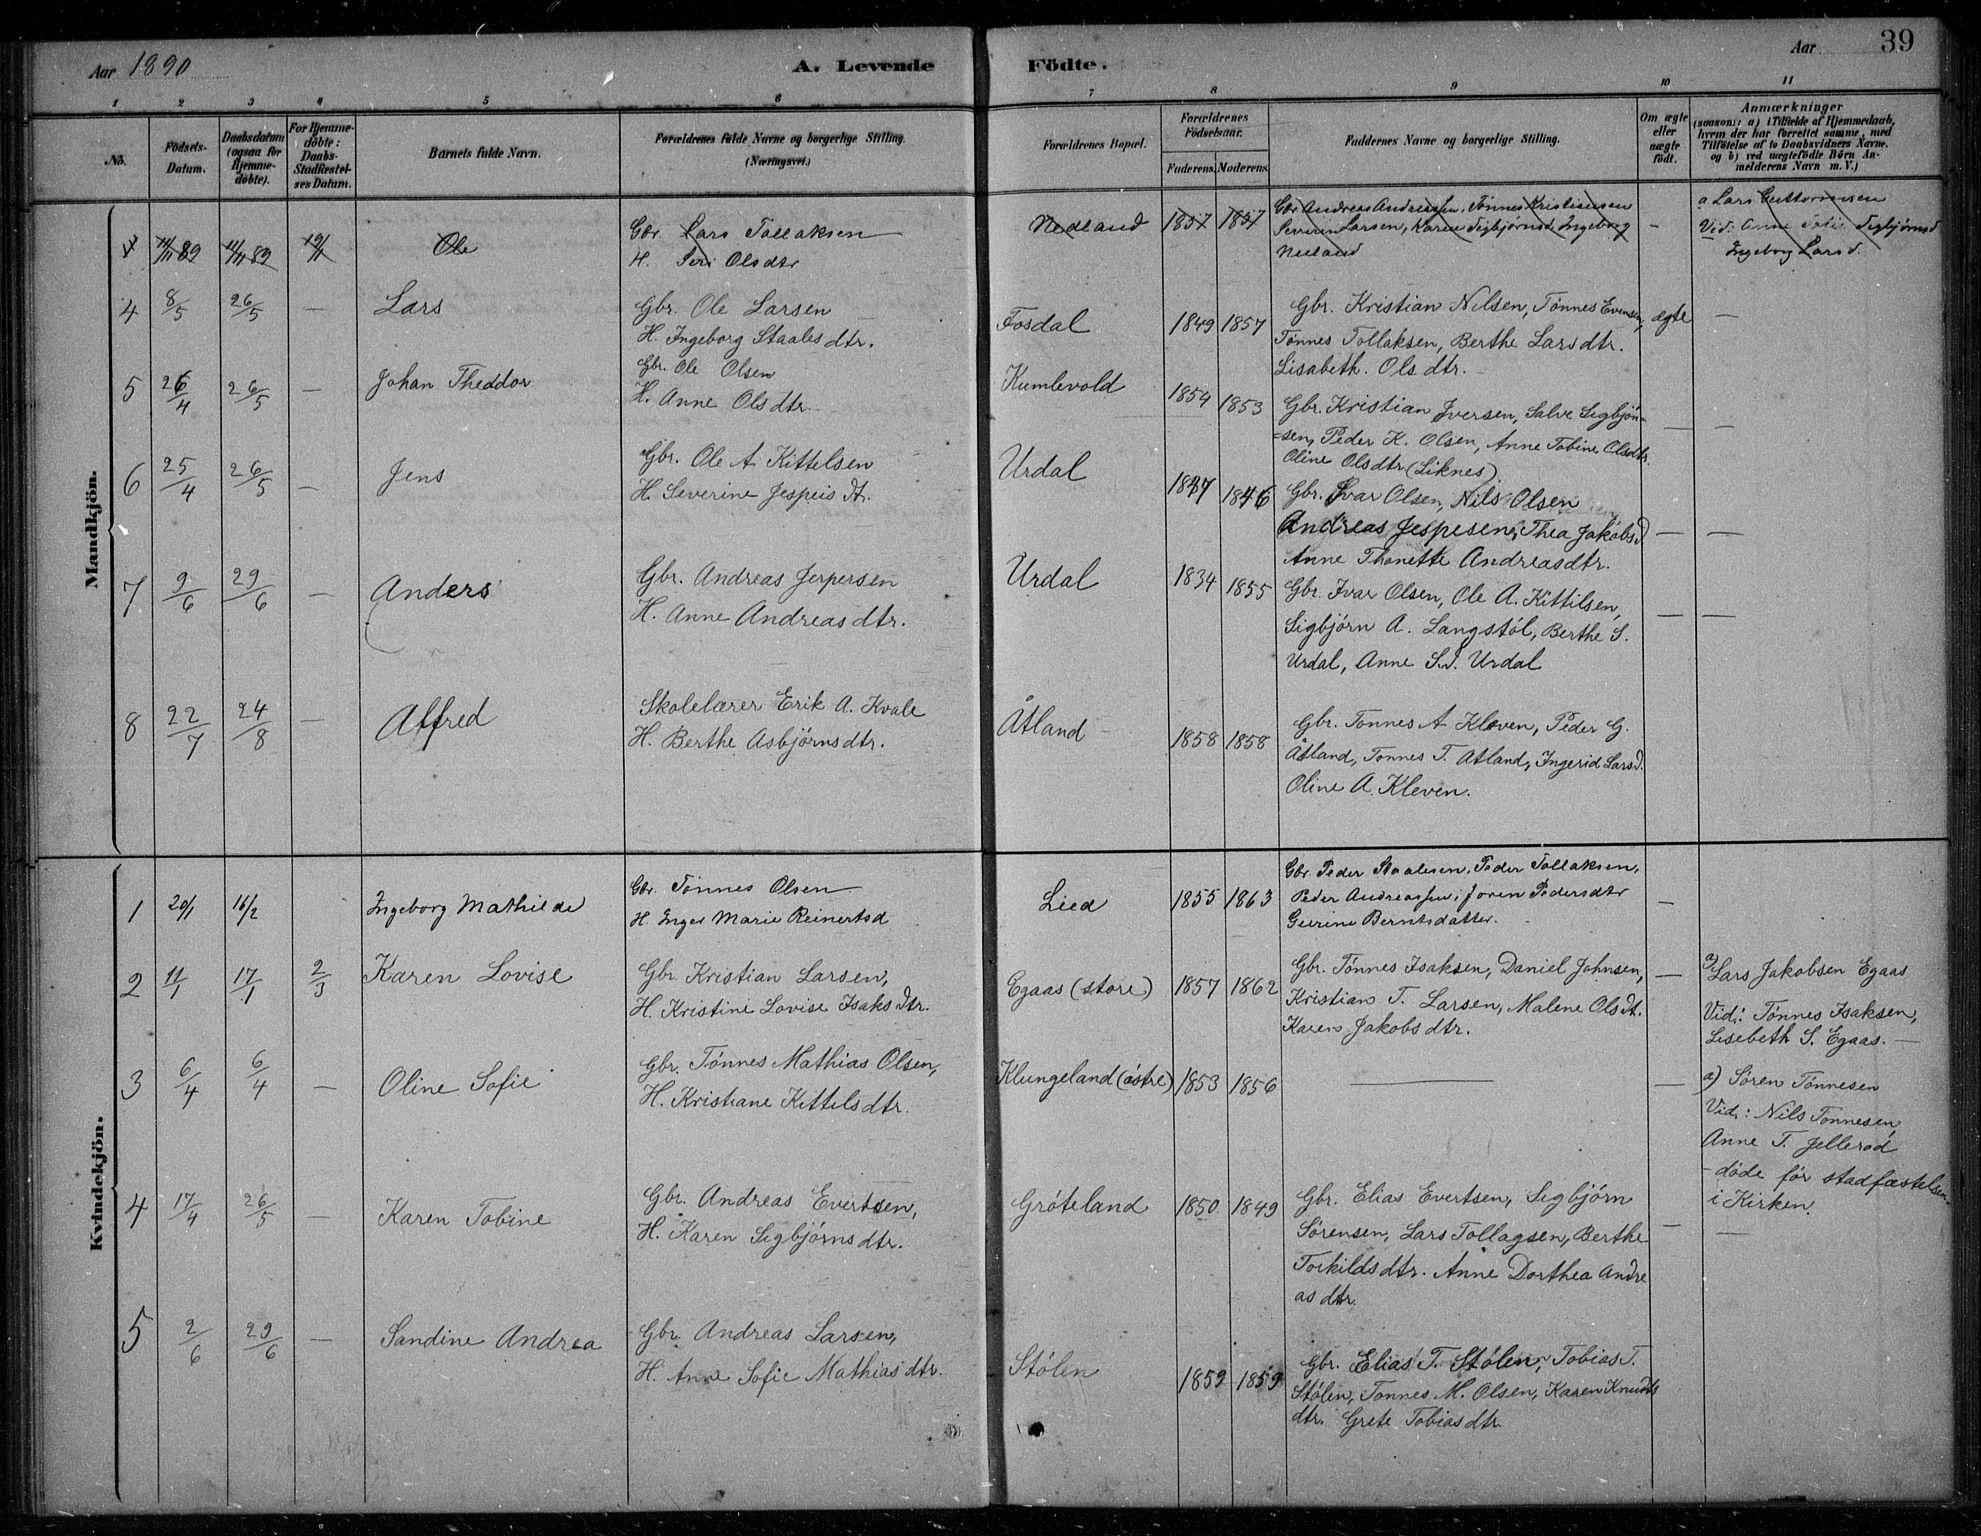 Aar 1890
A. Levende
Födte.
Aar
39
1 2 3 4 5 6 7 8 9 10 11
No.
Födsels-
Datum.
Daabsdatum
(ogsaa for
Hjemme-
döbte).
For Hjemme-
döbte:
Daabs-
Stadfæstel-
ses Datum.
Barnets fulde Navn.
Forældrenes fulde Navne og borgerlige Stilling.
(Næringsvei.)
Forældrenes Bopæl.
Forældrenes
Födselsaar.
Faderens. Moderens.
Faddernes Navne og borgerlige Stilling.
Om ægte
eller
uægte
födt.
Anmærkninger
(saasom: a) i Tilfælde af Hjemmedaab,
hvem der har forrettet samme, med
Tilföielse af to Daabsvidners Navne,
og b) ved uægtefödte Börn An-
melderens Navn m. V.)
Mandkjön.
11/11 89 11/11 89 19/1 Ole
Gbr. Lars Tollaksen
H. Siri Olsdtr
Nedland 1857 1857
Gbr Andreas Andreassen, Tønnes Kristiansen
Severin Larsen, Karen Sigbjørnsd, Ingeborg
Nedland
—
a Lars Guttormsen
Vid: Anne Sigbjørnsd
Ingeborg Larsd.
4 8/5 26/5 — Lars
Gbr. Ole Larsen
H. Ingeborg Staalesdtr.
Fosdal 1849 1857
Gbr. Kristian Nilsen, Tønnes Evensen,
Tønnes Tollaksen, Berthe Larsdtr.
Lisabeth. Olsdtr. —
ægte —
5 26/4 26/5 — Johan Theddor
Gbr. Ole Olsen
H. Anne Olsdtr.
Kumlevold 1854 1853
Gbr. Kristian Iversen, Salve Sigbjön-
=sen, Peder K. Olsen, Anne Tobine Olsdtr.
Oline Olsdtr (Liknes)
— —
6 25/4 26/5 — Jens
Gbr. Ole A. Kittelsen
H. Severine Jespeisdt.
Urdal 1847 1846
Gbr. Ivar Olsen, Nils Olsen
Andreas Jespesen, Thea Jakobsd
Anne Thonette Andreasdtr.
— —
7 9/6 29/6 — Anders
Gbr. Andreas Jerpersen
H. Anne Andreasdtr.
Urdal 1834 1855
Gbr. Ivar Olsen, Ole A. Kittilsen,
Sigbjörn A. Langstól, Berthe S.
Urdal, Anne S.d. Urdal
— —
8 22/7 24/8 — Alfred
Skolelærer Erik A. Kvale
H. Berthe Asbjörnsdtr.
Åtland 1858 1858
Gbr. Tonnes A Kleven, Peder G.
Åtland, Tonnes T. Atland, Ingerid Larsd.
Oline A. Kleven.
Kvindekjön.
1 20/1 16/2 Ingeborg Mathilde
Gbr. Tønnes Olsen
H. Inger Marie Reinertsd
Lied 1855 1863
Gbr. Peder Staalesen, Peder Tollaksen,
Peder Andreassen, Joren Pedersdtr
Geirine Berntsdatter.
—
2 11/1 17/1 2/3 Karen Lovise
Gbr. Kristian Larsen,
H. Kristine Lovise Isaksdtr.
Egaas (store) 1857 1862
Gbr. Tønnes Isaksen, Daniel Johnsen,
Kristian T. Larsen, Malene Olsdt.
Karen Jakobsdtr.
—
a) Lars Jakobsen Egaas
Vid: Tønnes Isaksen,
Lisebeth S. Egaas. —
3 6/4 6/4 — Oline Sofie
Gbr. Tønnes Mathias Olsen,
H. Kristiane Kittilsdtr.
Klungeland (östre) 1853 1856
— —
a) Sören Tönnesen
Vid: Nils Tönnesen
Anne T. Jellerød
- döde för stadfæstelsen
i Kirken.
4 17/4 26/5 — Karen Tobine
Gbr. Andreas Evertsen,
H. Karen Sigbjörnsdtr.
Gróteland 1850 1849
Gbr. Elias Evertsen, Sigbjörn
Sørensen, Lars Tollagsen, Berthe
Torkildsdtr. Anne Dorthea Andre
asdtr.
— —
5 2/6 29/6 — Sandine Andrea
Gbr. Andreas Larsen,
H. Anne Sofie Mathiasdtr.
Stólen 1859 1859
Gbr. Elias T. Stólen, Tobias T.
Stólen, Tonnes M. Olsen, Karen Knuds
dtr. Grete Tobiasdtr.